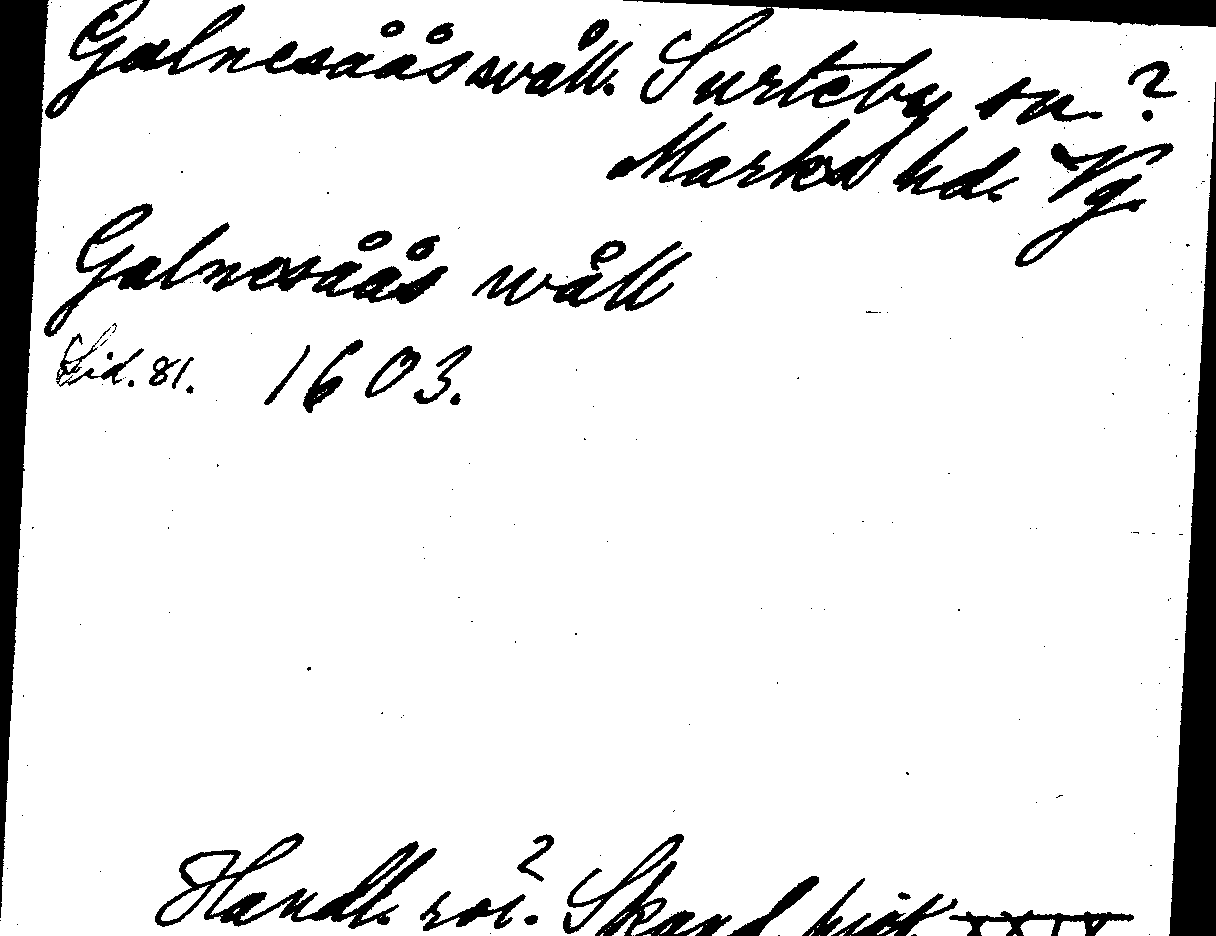 Galnesååswåll. Surteby sn. ?
Marks hd. Vg.
Galnesåås wåll
Sid. 81. 1603.
Handl. rör. Skand. hist. XXIV